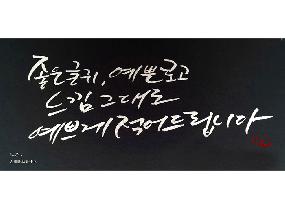 좋은글귀, 예쁜로고
느낌 그대로
예쁘게 적어드립니다